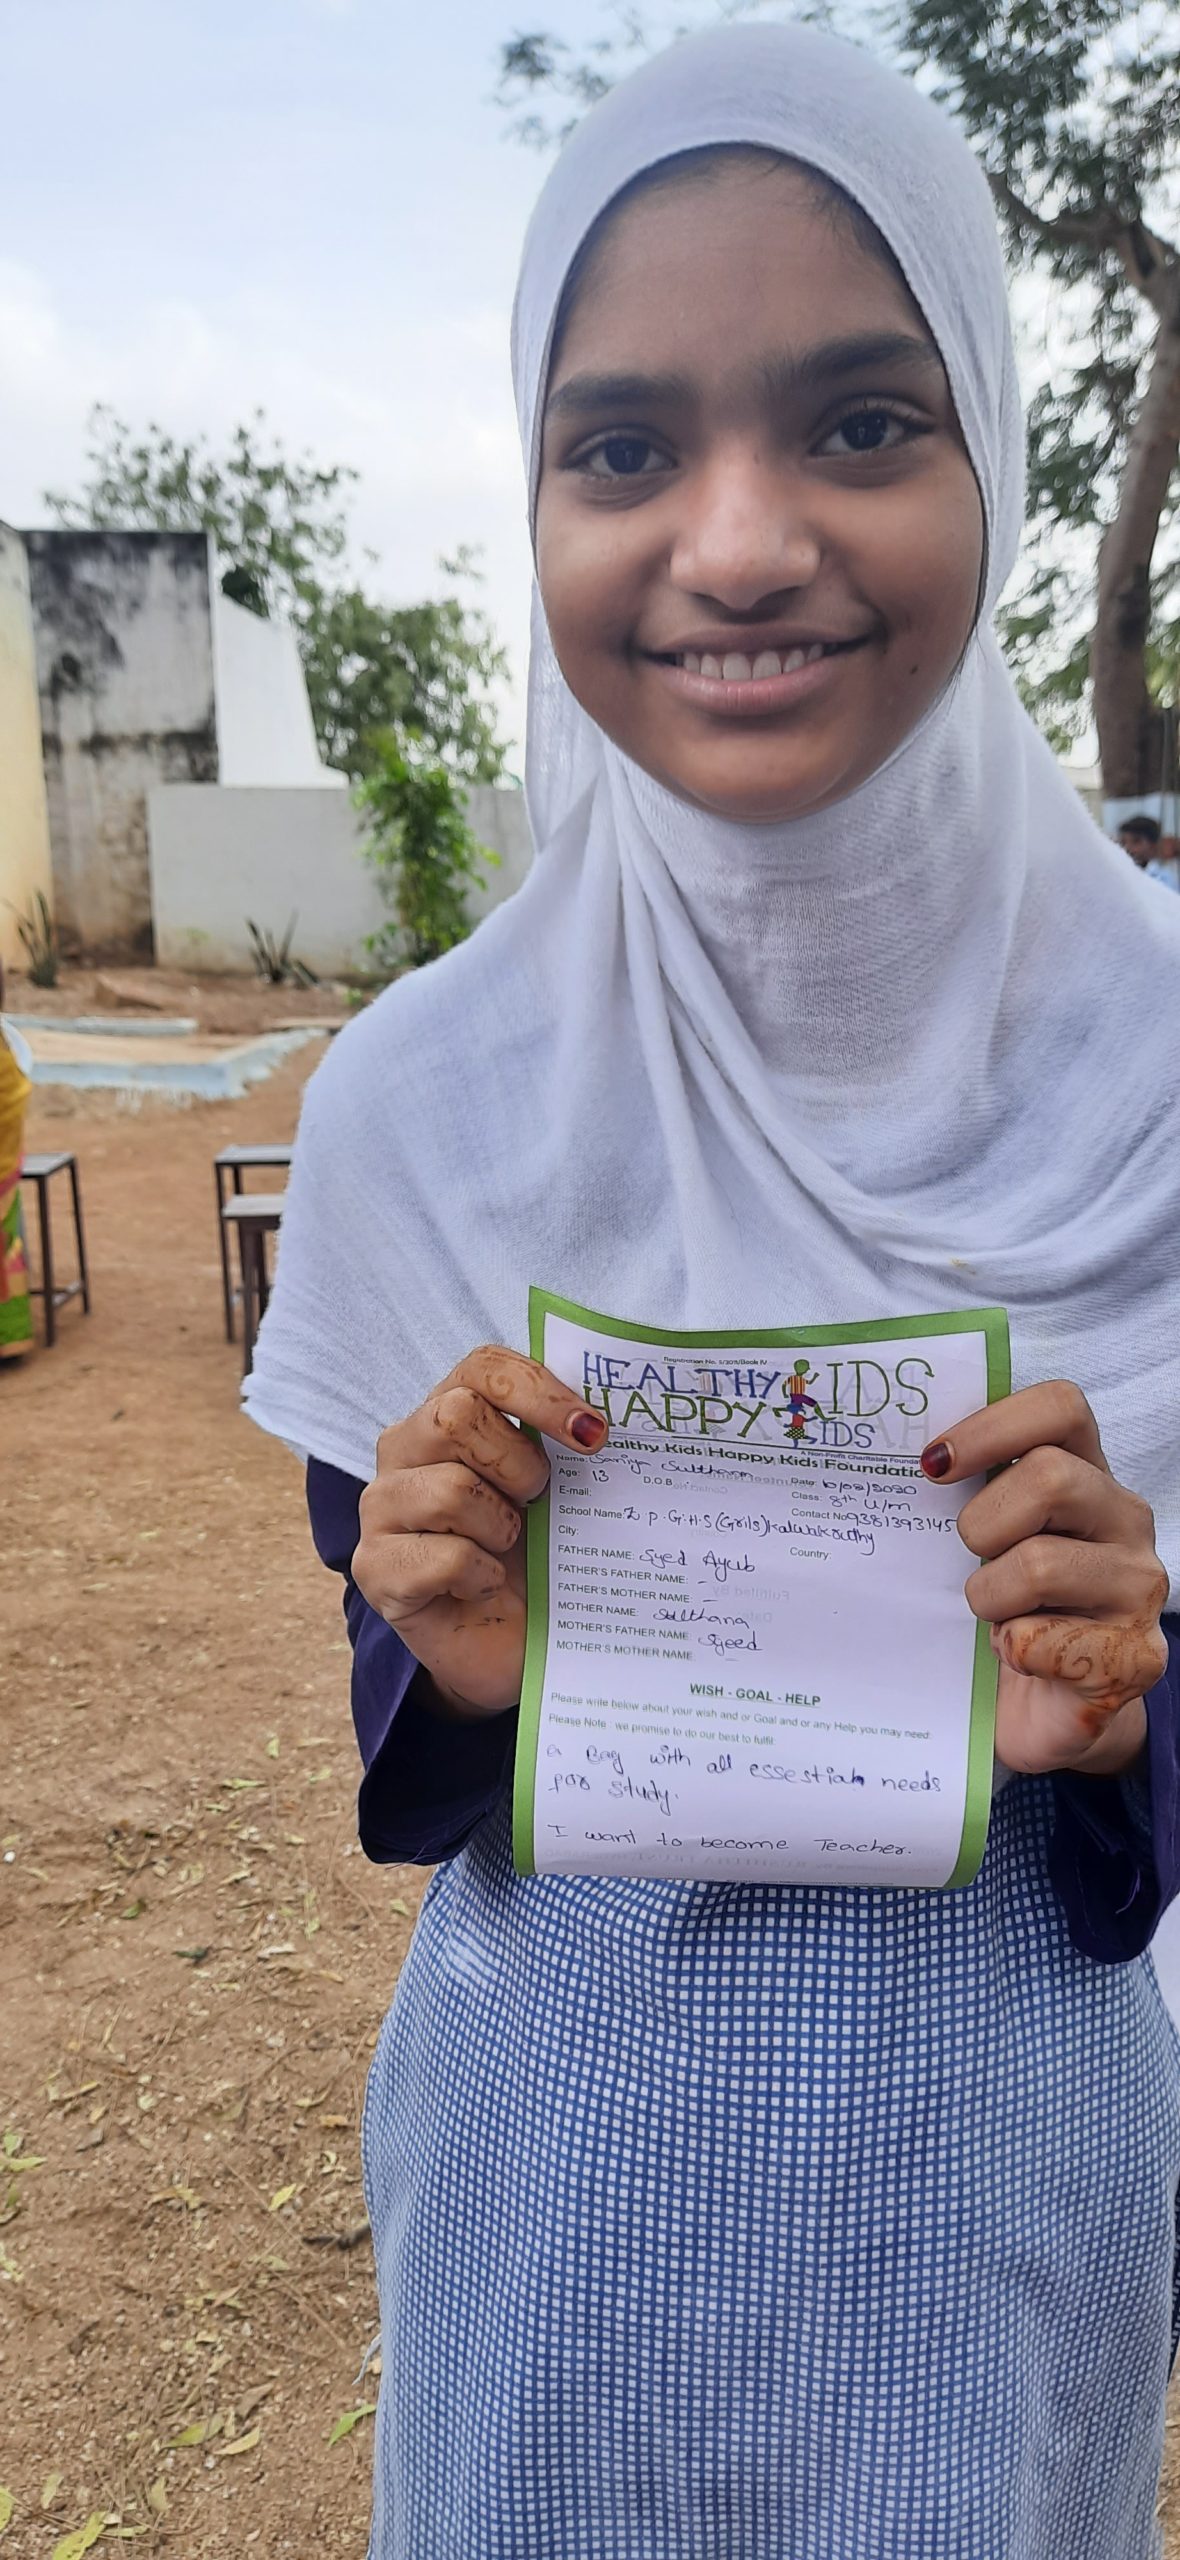 Registration No. 5/2011/Book IV
HEALTHY KIDS
HAPPY KIDS
A Non-Profit Charitable Foundation
Healthy Kids Happy Kids Foundation
Name: Saniya Sulthana Date: 10/02/2020
Age: 13 D.O.B. Class: 8th U/m
E-mail: Contact No 9381393145
School Name: Z p. G.H.S (Grils) kalwakurthy
City: Country:
FATHER NAME: Syed Ayub
FATHER'S FATHER NAME: -
FATHER'S MOTHER NAME: -
MOTHER NAME: Sulthana
MOTHER'S FATHER NAME: Syeed
MOTHER'S MOTHER NAME: -
WISH - GOAL - HELP
Please write below about your wish and or Goal and or any Help you may need:
Please Note : we promise to do our best to fulfil:
a Bag with all essestial needs
for study.
I want to become Teacher.